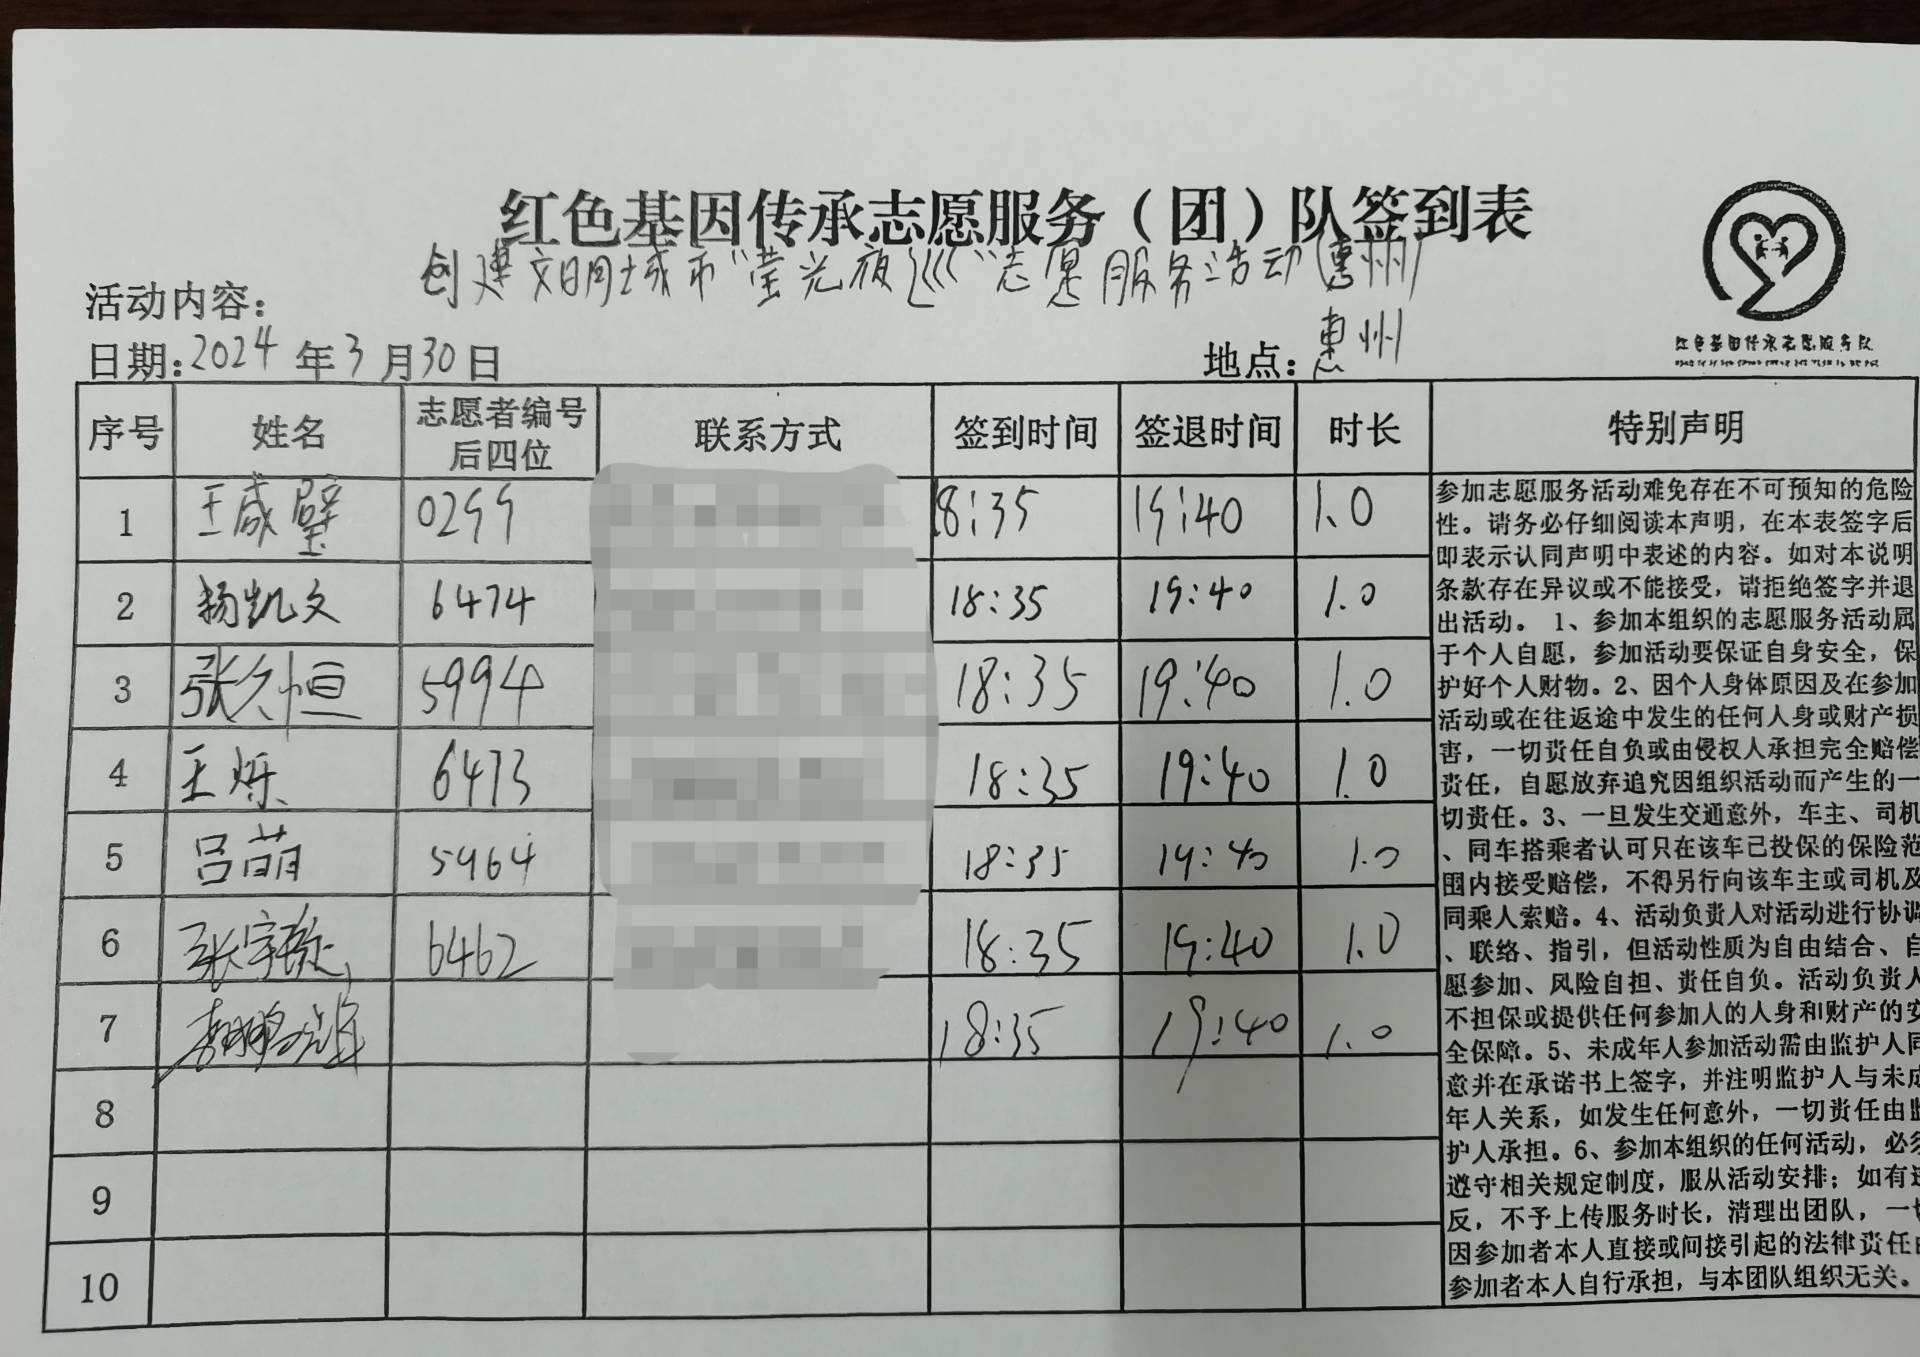 红色基因传承志愿服务（团）队签到表
创建文明城市“萤光夜巡”志愿服务活动(惠州)
活动内容：
日期：2024年3月30日 地点：惠州
红色基因传承志愿服务队
序号 姓名 志愿者编号后四位 联系方式 签到时间 签退时间 时长 特别声明
1 王咸璧 0299 18:35 19:40 1.0
2 杨凯文 6474 18:35 19:40 1.0
3 张久恒 5994 18:35 19:40 1.0
4 王烁 6473 18:35 19:40 1.0
5 吕萌 5964 18:35 19:40 1.0
6 张宇 6462 18:35 19:40 1.0
7 18:35 19:40 1.0
8
9
10
参加志愿服务活动难免存在不可预知的危险
性。请务必仔细阅读本声明，在本表签字后
即表示认同声明中表述的内容。如对本说明
条款存在异议或不能接受，请拒绝签字并退
出活动。 1、参加本组织的志愿服务活动属
于个人自愿，参加活动要保证自身安全，保
护好个人财物。2、因个人身体原因及在参加
活动或在往返途中发生的任何人身或财产损
害，一切责任自负或由侵权人承担完全赔偿
责任，自愿放弃追究因组织活动而产生的一
切责任。3、一旦发生交通意外，车主、司机
、同车搭乘者认可只在该车已投保的保险范
围内接受赔偿，不得另行向该车主或司机及
同乘人索赔。4、活动负责人对活动进行协调
、联络、指引，但活动性质为自由结合、自
愿参加、风险自担、责任自负。活动负责人
不担保或提供任何参加人的人身和财产的安
全保障。5、未成年人参加活动需由监护人同
意并在承诺书上签字，并注明监护人与未成
年人关系，如发生任何意外，一切责任由监
护人承担。6、参加本组织的任何活动，必须
遵守相关规定制度，服从活动安排；如有违
反，不予上传服务时长，清理出团队，一切
因参加者本人直接或间接引起的法律责任由
参加者本人自行承担，与本团队组织无关。